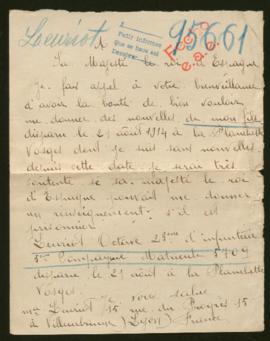 Leuriot
95661
Pedir informes
que se hace asi
Sa Majesté le roi d'Espagne
Je fais appel à votre bienveillance
d'avoir la bonté de bien vouloir
me donner des nouvelles de mon fils
disparu le 21 août 1914 à la Plambotte
Vosges dont je suis sans nouvelles
depuis cette date je serai très
contente se sa majesté le roi
d'Espagne pouvait me donner
un renseignement s'il est
prisonnier
Leuriot Octave d'infanterie
5me Compagnie Matricule 5709
disparu le 21 août à la Plambotte
Vosges
vous salue
Mme Leuriot 15 rue du Progrès 15
à Villeurbanne (Lyon) France